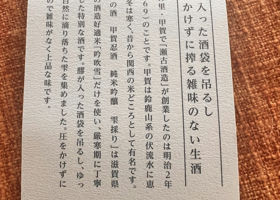 入った酒袋を吊るし
かけずに搾る雑味のない生酒
里・甲賀で「瀬古酒造」が創業したのは明治2年
69)のことです。甲賀は鈴鹿山系の伏流水に恵
冬は寒く、昔から関西の米どころとして有名です。
の酒 甲賀忍酒 純米吟醸 雫搾り」は滋賀県
の酒造好適米「吟吹雪」だけを使い、厳寒期に丁寧
した特別な酒です。醪が入った酒袋を吊るし、ゆっ
自然に滴り落ちた雫を集めました。圧をかけずに
ので雑味がなく上品な味です。